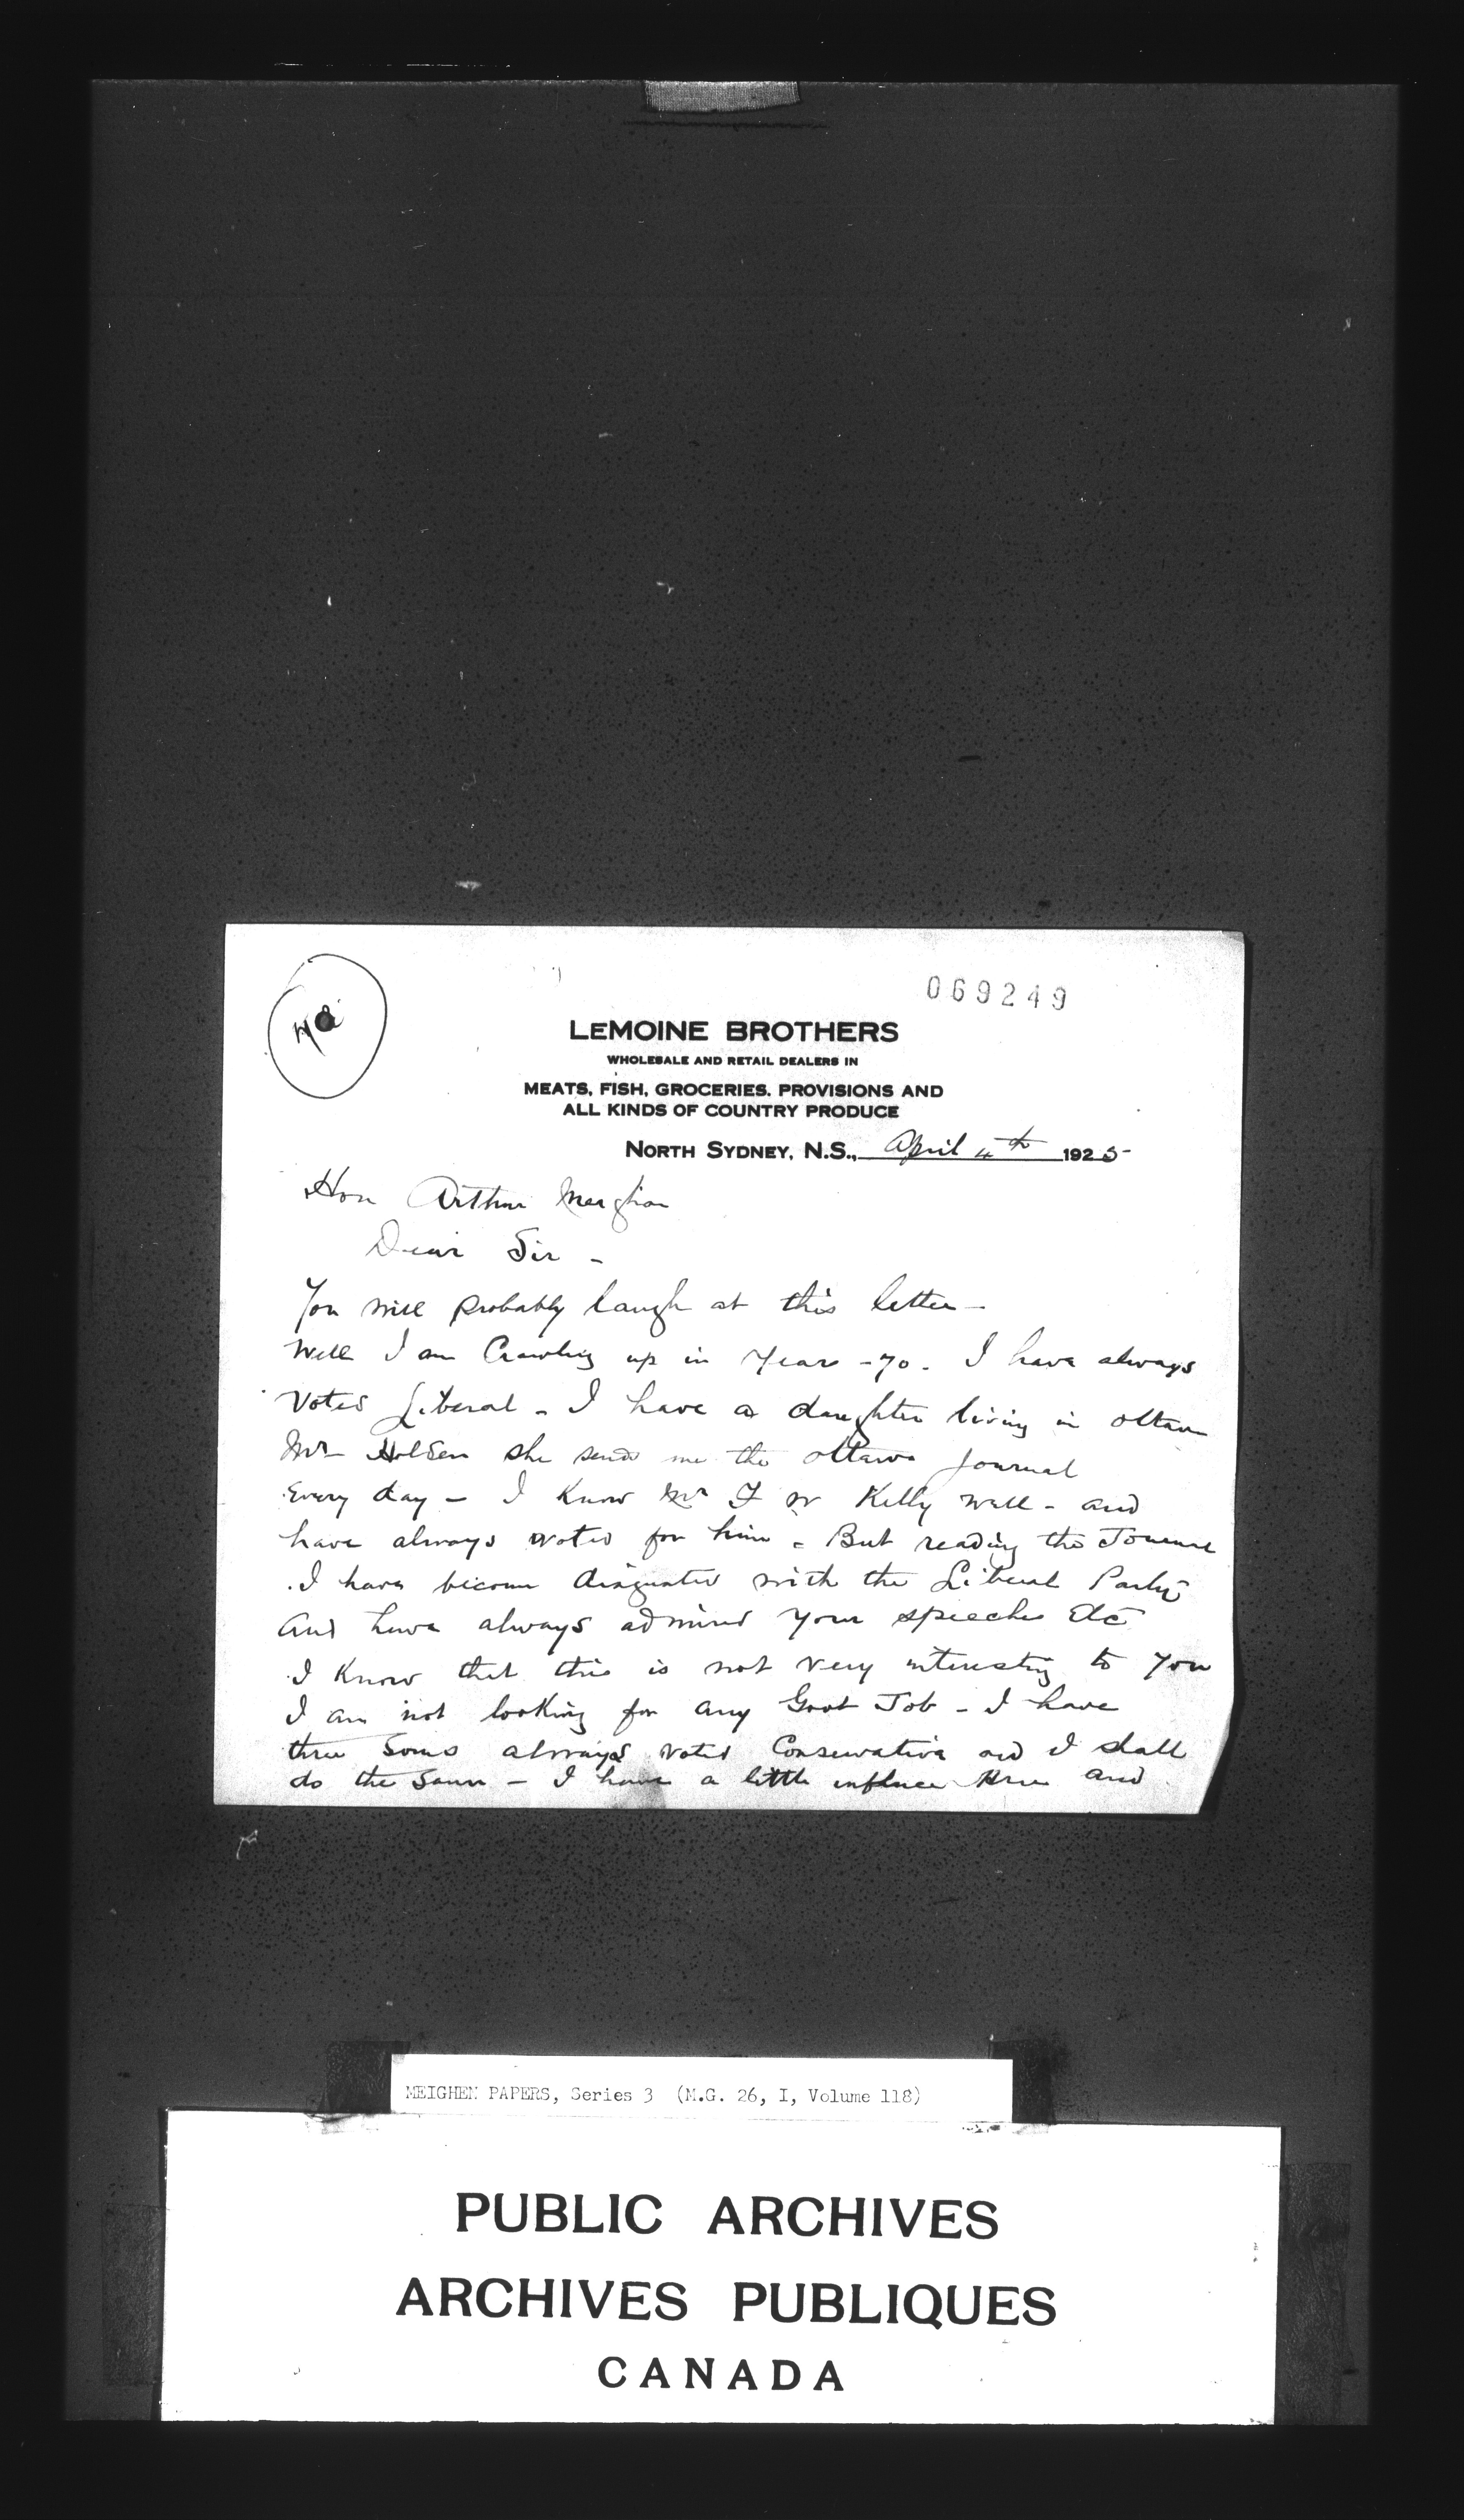 069249
LEMOINE BROTHERS
WHOLESALE AND RETAIL DEALERS IN
MEATS, FISH, GROCERIES. PROVISIONS AND
ALL KINDS OF COUNTRY PRODUCE
NORTH SYDNEY, N.S., April 4th 1925
Hon Arthur Meighan
Dear Sir -
You will probably laugh at this letter -
Well I am Crawling up in Years - 70. I have always
Voted Liberal - I have a daughter living in Ottawa
Mrs Holden she sends me the Ottawa Journal
Every day - I Know Mr F W Kelly well - and
have always voted for him - But reading the Journal
I have become disgusted with the Liberal Party
And have always admired your speeches Etc
I Know that this is not very interesting to you
I am not looking for any Govt Job - I have
three Sons always voted Conservative and I shall
do the Same - I have a little influence Here and
MEIGHEN PAPERS, Series 3 (M.G. 26, I, Volume 118)
PUBLIC ARCHIVES
ARCHIVES PUBLIQUES
CANADA